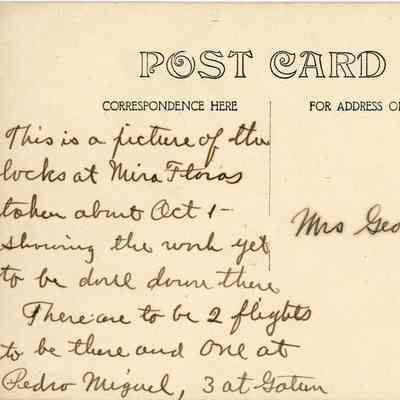 POST CARD
CORRESPONDENCE HERE
FOR ADDRESS
This is a picture of the
locks at Mira Floras
taken about Oct 1-
showing the work yet
to be done down there
There are to be 2 flights
to be there and one at
Pedro Miguel, 3 at Gatun
Mrs Geo